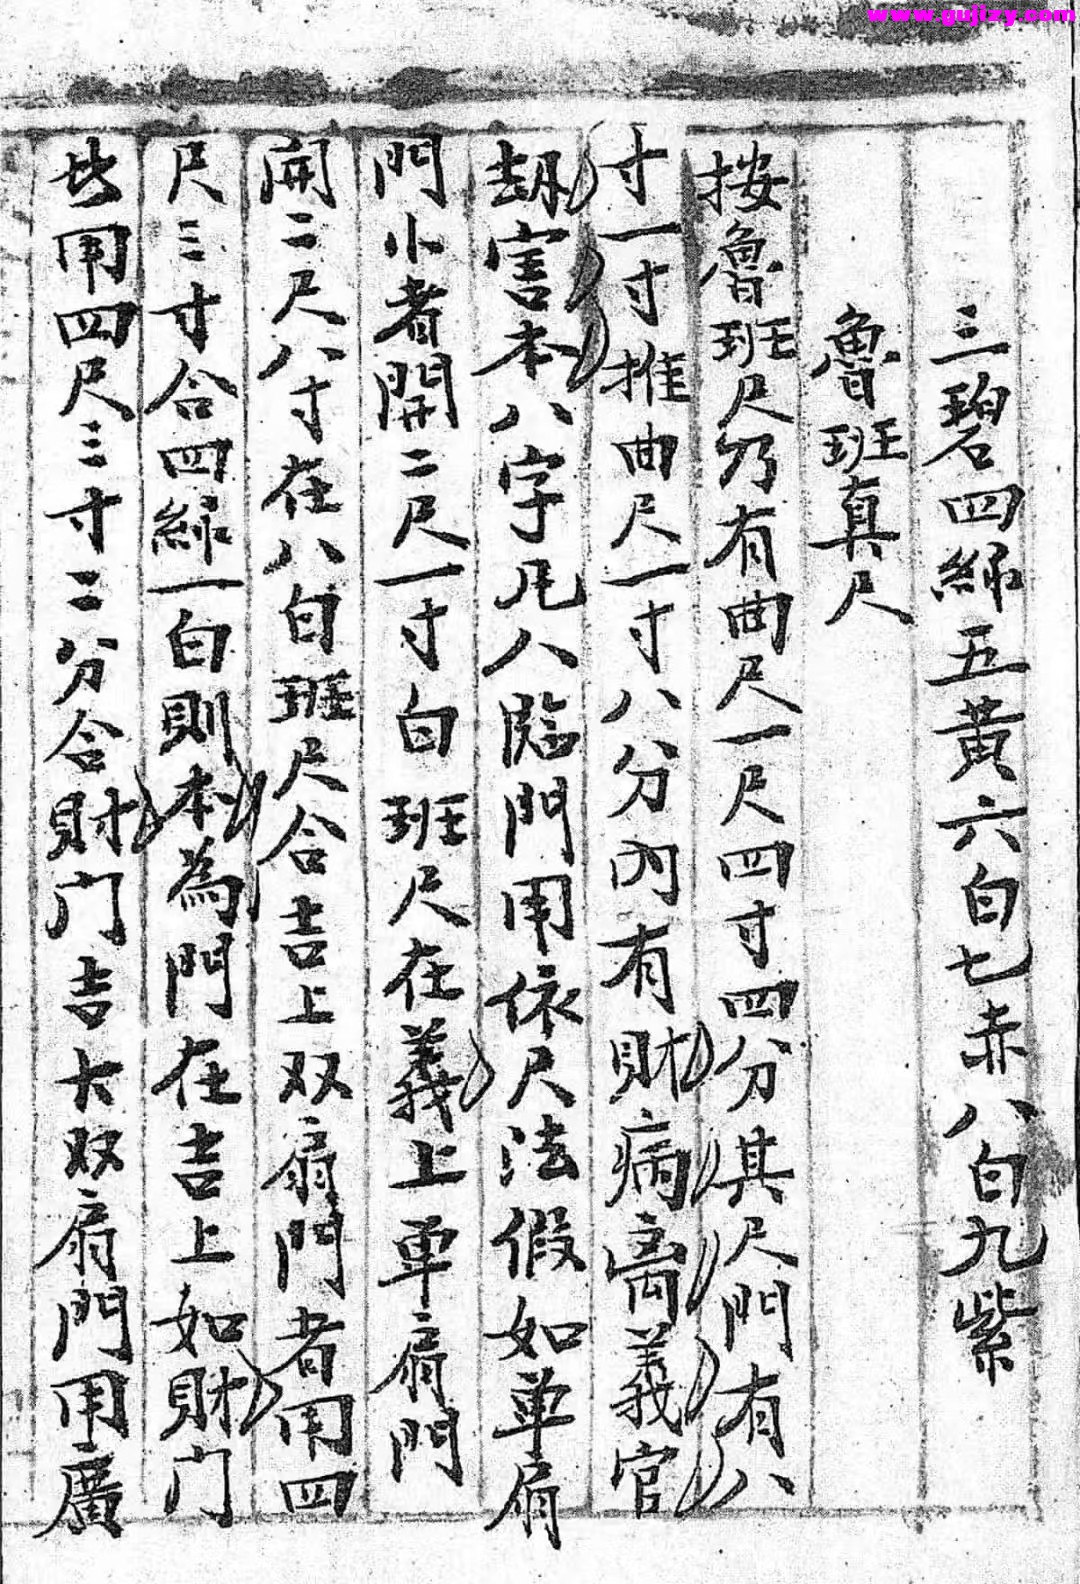 www.gujizy.com
三碧四綠五黃六白七赤八白九紫
魯班真尺
按魯班尺乃有曲尺一尺四寸四分其尺門有八
寸一寸推曲尺一寸八分內有財病离義官
刼害本八字凡人臨門用依尺法假如单扇
門小者開二尺一寸白班尺在義上单扇門
開二尺八寸在八白班尺合吉上双扇門者用四
尺三寸合四綠一白則本為門在吉上如財门
也用四尺三寸二分合財门吉大双扇門用廣